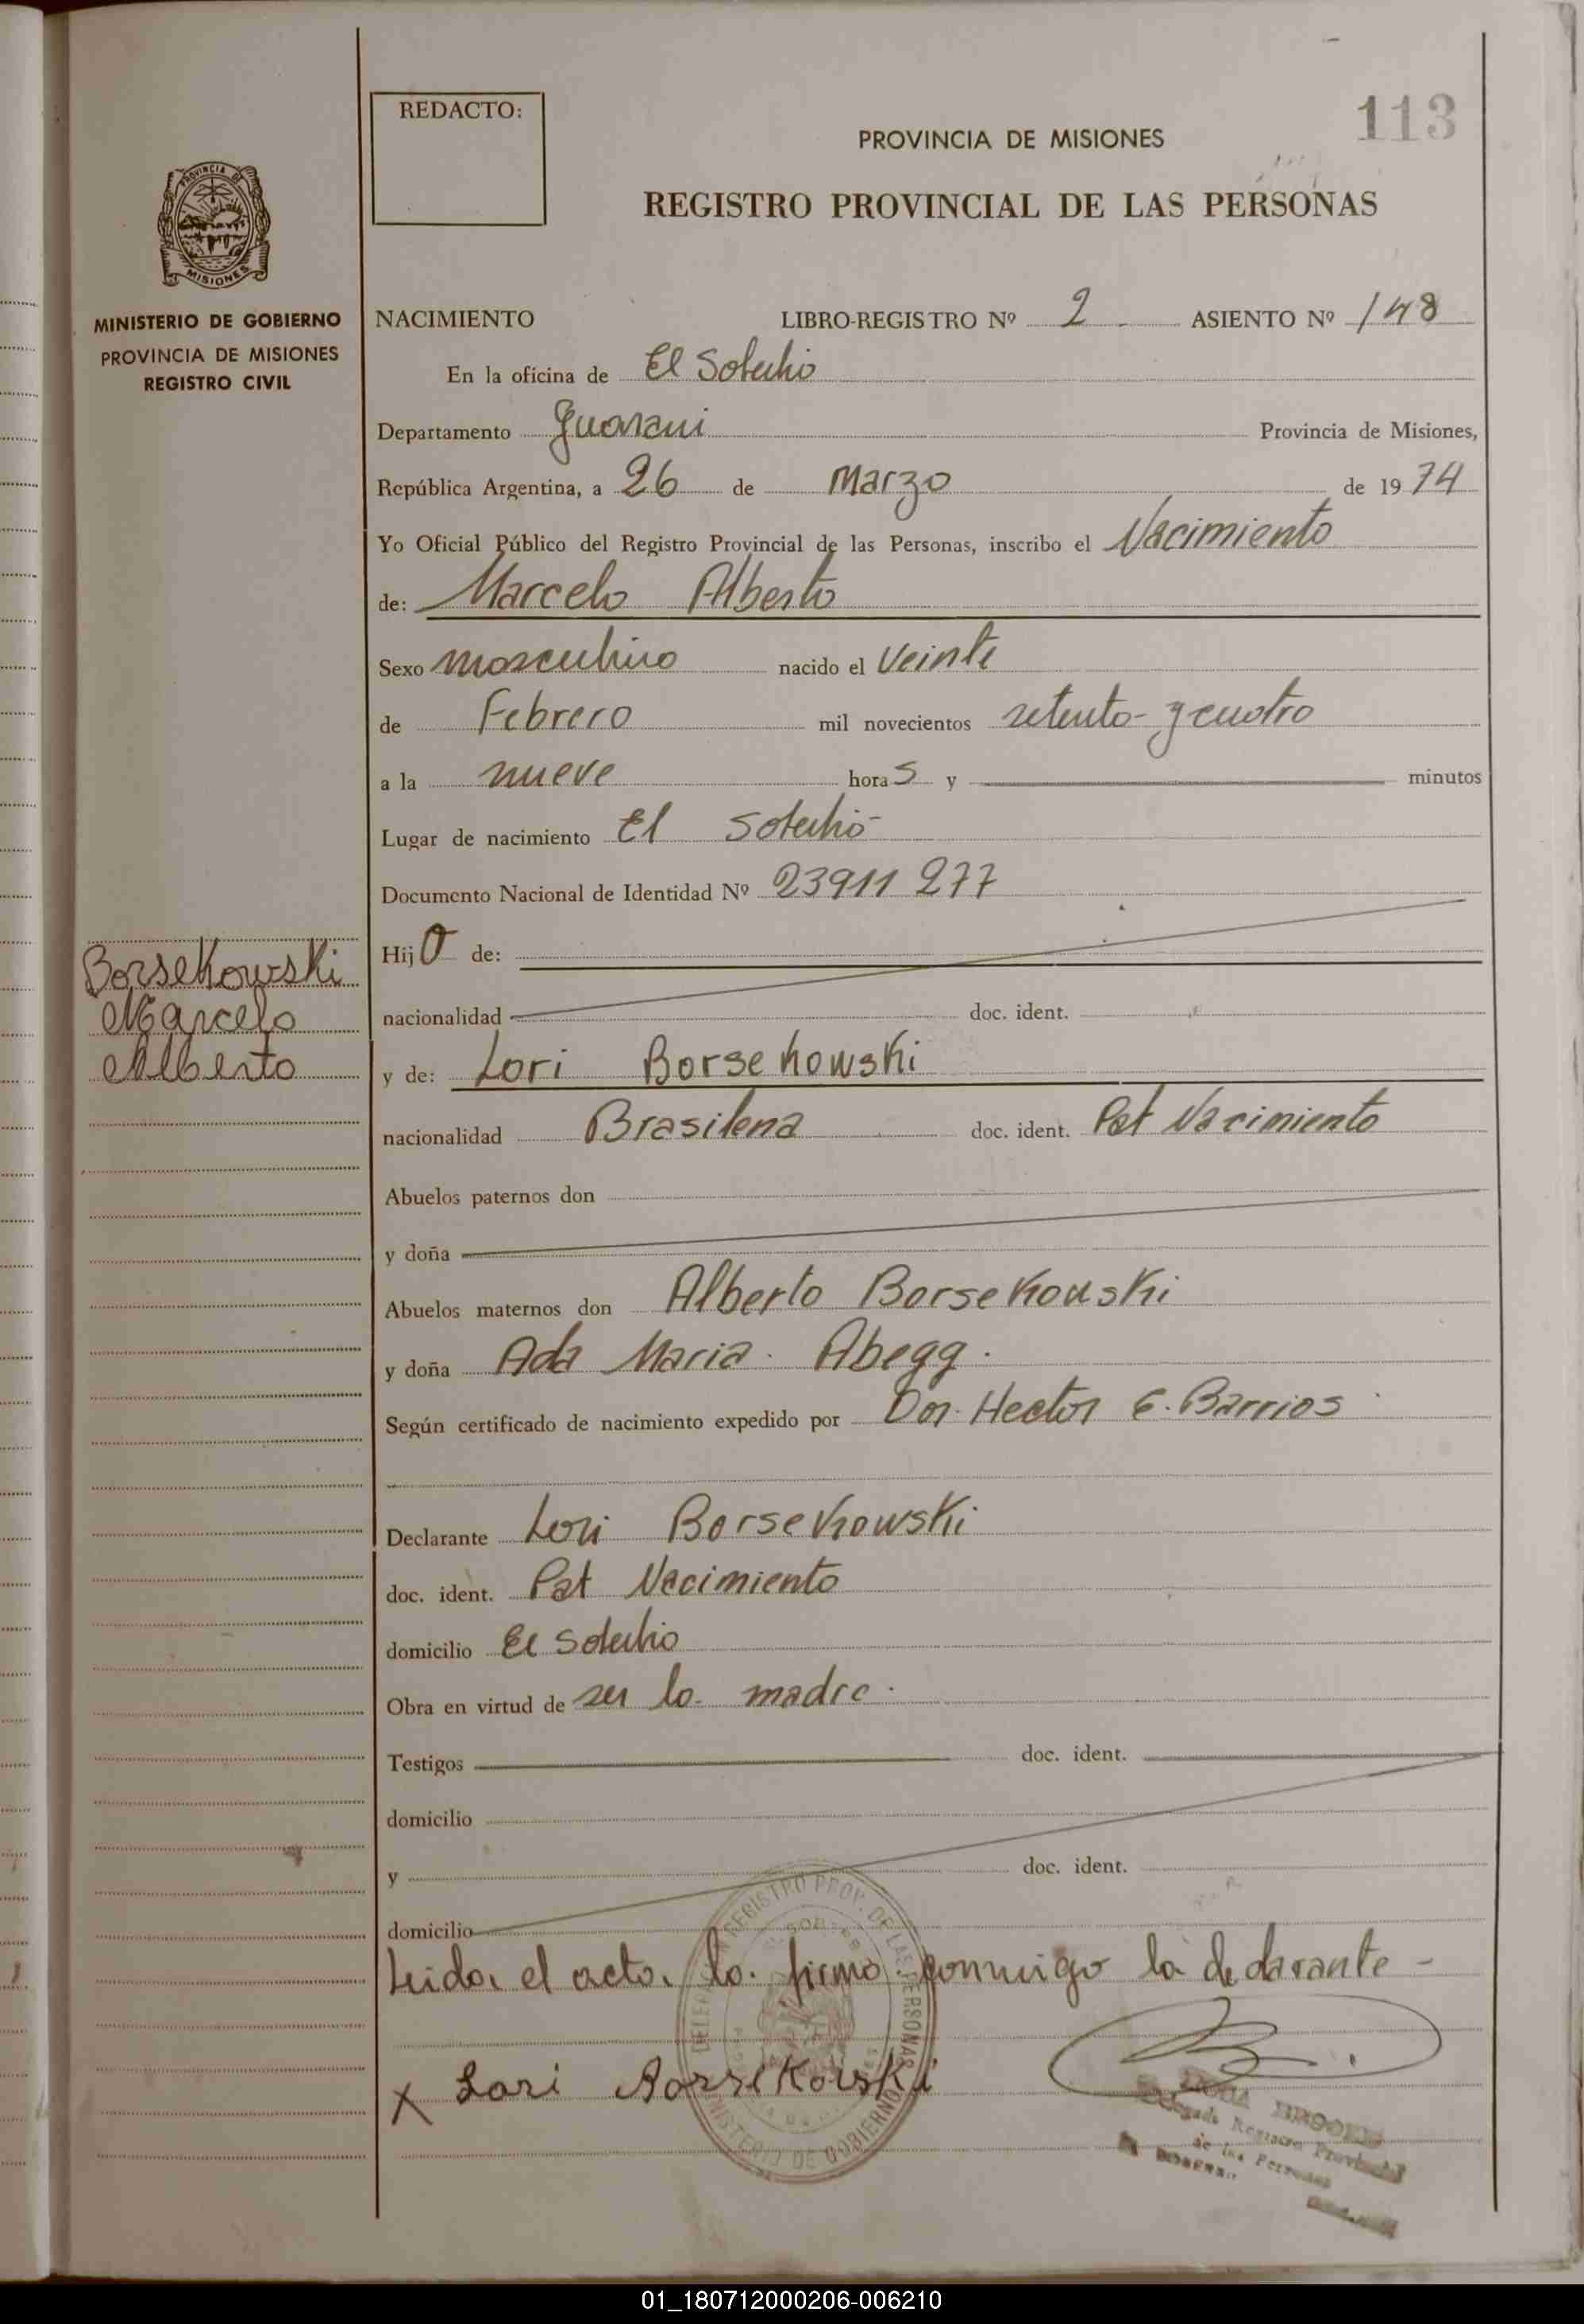 REDACTO:
113
PROVINCIA DE MISIONES
REGISTRO PROVINCIAL DE LAS PERSONAS
PROVINCIA DE
MISIONES
MINISTERIO DE GOBIERNO
PROVINCIA DE MISIONES
REGISTRO CIVIL
NACIMIENTO LIBRO-REGISTRO Nº 2 ASIENTO Nº 148
En la oficina de El Soberbio
Departamento Guarani Provincia de Misiones,
República Argentina, a 26 de Marzo de 1974
Yo Oficial Público del Registro Provincial de las Personas, inscribo el Nacimiento
de: Marcelo Alberto
Sexo masculino nacido el Veinte
de Febrero mil novecientos setenta y cuatro
a la nueve horas y minutos
Lugar de nacimiento El Soberbio
Documento Nacional de Identidad Nº 23911277
Hijo de:
nacionalidad doc. ident.
Borsekowski
Marcelo
Alberto
y de: Lori Borsekowski
nacionalidad Brasilena doc. ident. Pat Nacimiento
Abuelos paternos don
y doña
Abuelos maternos don Alberto Borsekouski
y doña Ada Maria Abegg.
Según certificado de nacimiento expedido por Dor. Hector E. Barrios
Declarante Lori Borsekowski
doc. ident. Pat Nacimiento
domicilio El Soberbio
Obra en virtud de ser la madre.
Testigos doc. ident.
domicilio
y doc. ident.
domicilio
Leida el acta, la firma conmigo la declarante -
REGISTRO PROV. DE LAS PERSONAS
MINISTERIO DE GOBIERNO
X Lori Borsekowski
Delegada Registro Provincial
de las Personas
01_180712000206-006210